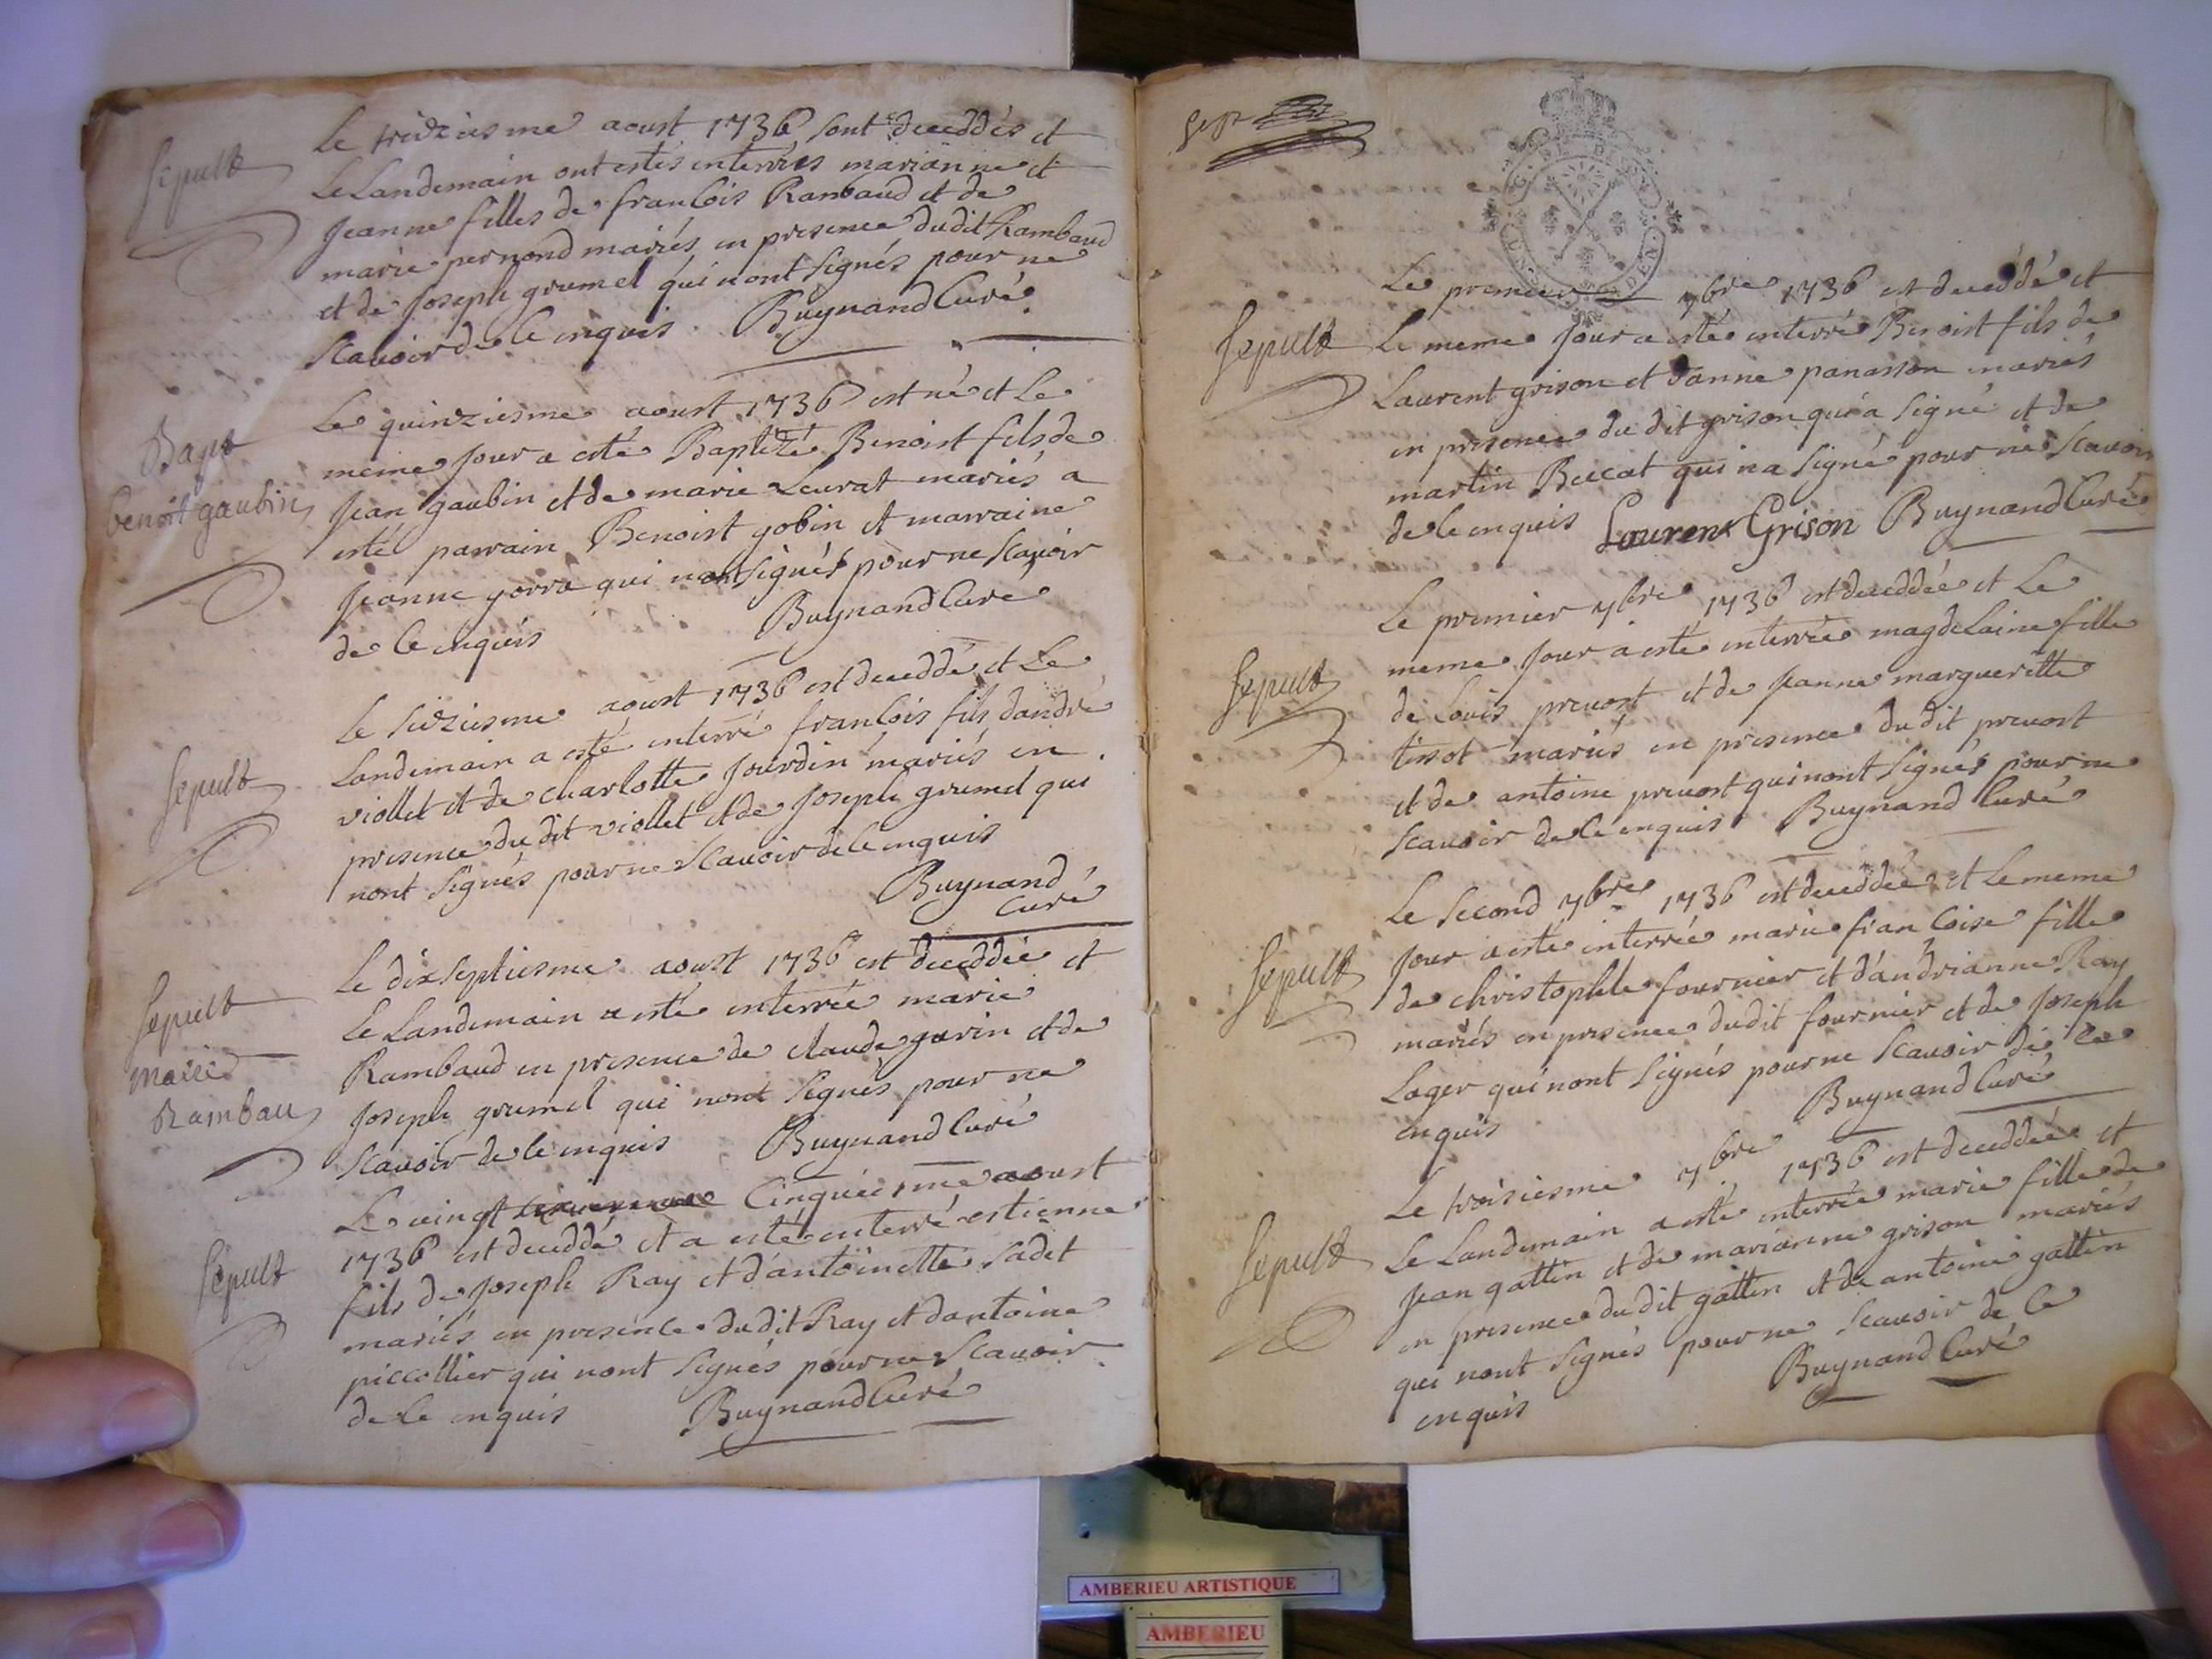 Sepult
Le treiziesme aoust 1736 sont deceddés et
Le Landemain ont estés interrées marianne et
Jeanne filles de francois Rambaud et de
marie pernond mariés en presence dudit Rambaud
et de Joseph grumel qui nont signés pour ne
scavoir de ce enquis Buynand Curé
Bapt
benoit gaubin
Le quinziesme aoust 1736 est né et Le
meme Jour a esté Baptizé Benoist fils de
Jean gaubin et de marie Leurat mariés a
esté parrain Benoist gobin et marraine
Jeanne gorra qui nont signés pour ne scavoir
de ce enquis Buynand Curé
Sepult
Le seiziesme aoust 1736 est deceddé et Le
Landemain a esté interré francois fils dandré
viollet et de charlotte Jourdin mariés en
presence du dit viollet et de Joseph grumel qui
nont signés pour ne scavoir de ce enquis
Buynand
Curé
Sepult
marie
Rambau
Le dixseptiesme aoust 1736 est deceddée et
Le Landemain a esté interrée marie
Rambaud en presence de claude garin et de
Joseph grumel qui nont signés pour ne
scavoir de ce enquis Buynand Curé
Sepult
Le vingt Cinquiesme aoust
1736 est deceddé et a esté interré estienne
fils de Joseph Ray et d'antoinette Sadet
mariés en presence dudit Ray et dantoine
piccollier qui nont signés pour ne scavoir
de ce enquis Buynand Curé
Sept
Sepult
Le premier 7bre 1736 est deceddé et
Le meme Jour a esté interré Benoist fils de
Laurent grison et danne panasson mariés
en presence du dit grison qui a signé et de
martin Beccat qui na signé pour ne scavoir
de ce enquis Laurent Grison Buynand Curé
Sepult
Le premier 7bre 1736 est deceddée et Le
meme Jour a esté interrée magdelaine fille
de Louis prevost et de Jeanne margueritte
tissot mariés en presence du dit prevost
et de antoine prevost qui nont signés pour ne
scavoir de ce enquis Buynand Curé
Sepult
Le second 7bre 1736 est deceddée et Le meme
Jour a esté interrée marie francoise fille
de christophle fournier et d'andrianne Ray
mariés en presence dudit fournier et de Joseph
Loger qui nont signés pour ne scavoir de ce
enquis Buynand Curé
Sepult
Le troisiesme 7bre 1736 est deceddée et
Le Landemain a esté interrée marie fille de
Jean gattin et de marianne grison mariés
en presence du dit gattin et de antoine gattin
qui nont signés pour ne scavoir de ce
enquis Buynand Curé
AMBERIEU ARTISTIQUE
AMBERIEU